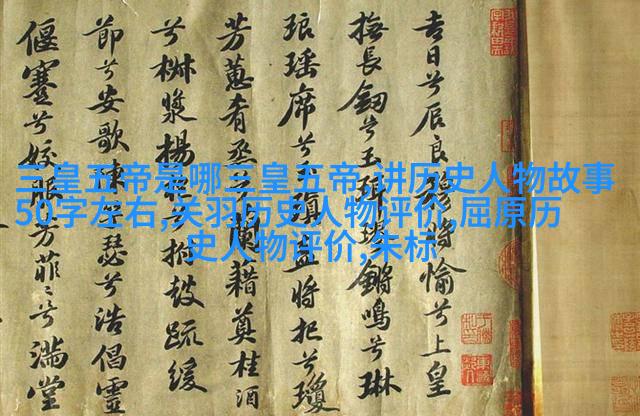 三皇五帝是哪三皇五帝,讲历史人物故事
50字左右,关羽历史人物评价,屈原历
史人物评价,朱标
吉日兮辰良穆將愉兮上皇
撫長劒兮玉珥璆鏘鳴兮琳
琅瑤席兮玉瑱盍將把兮瓊
芳蕙肴烝兮蘭藉奠桂酒
兮椒漿揚兮拊鼓疏緩
節兮安歌陳瑟兮浩倡靈
偃蹇兮姣服芳菲〻兮滿堂